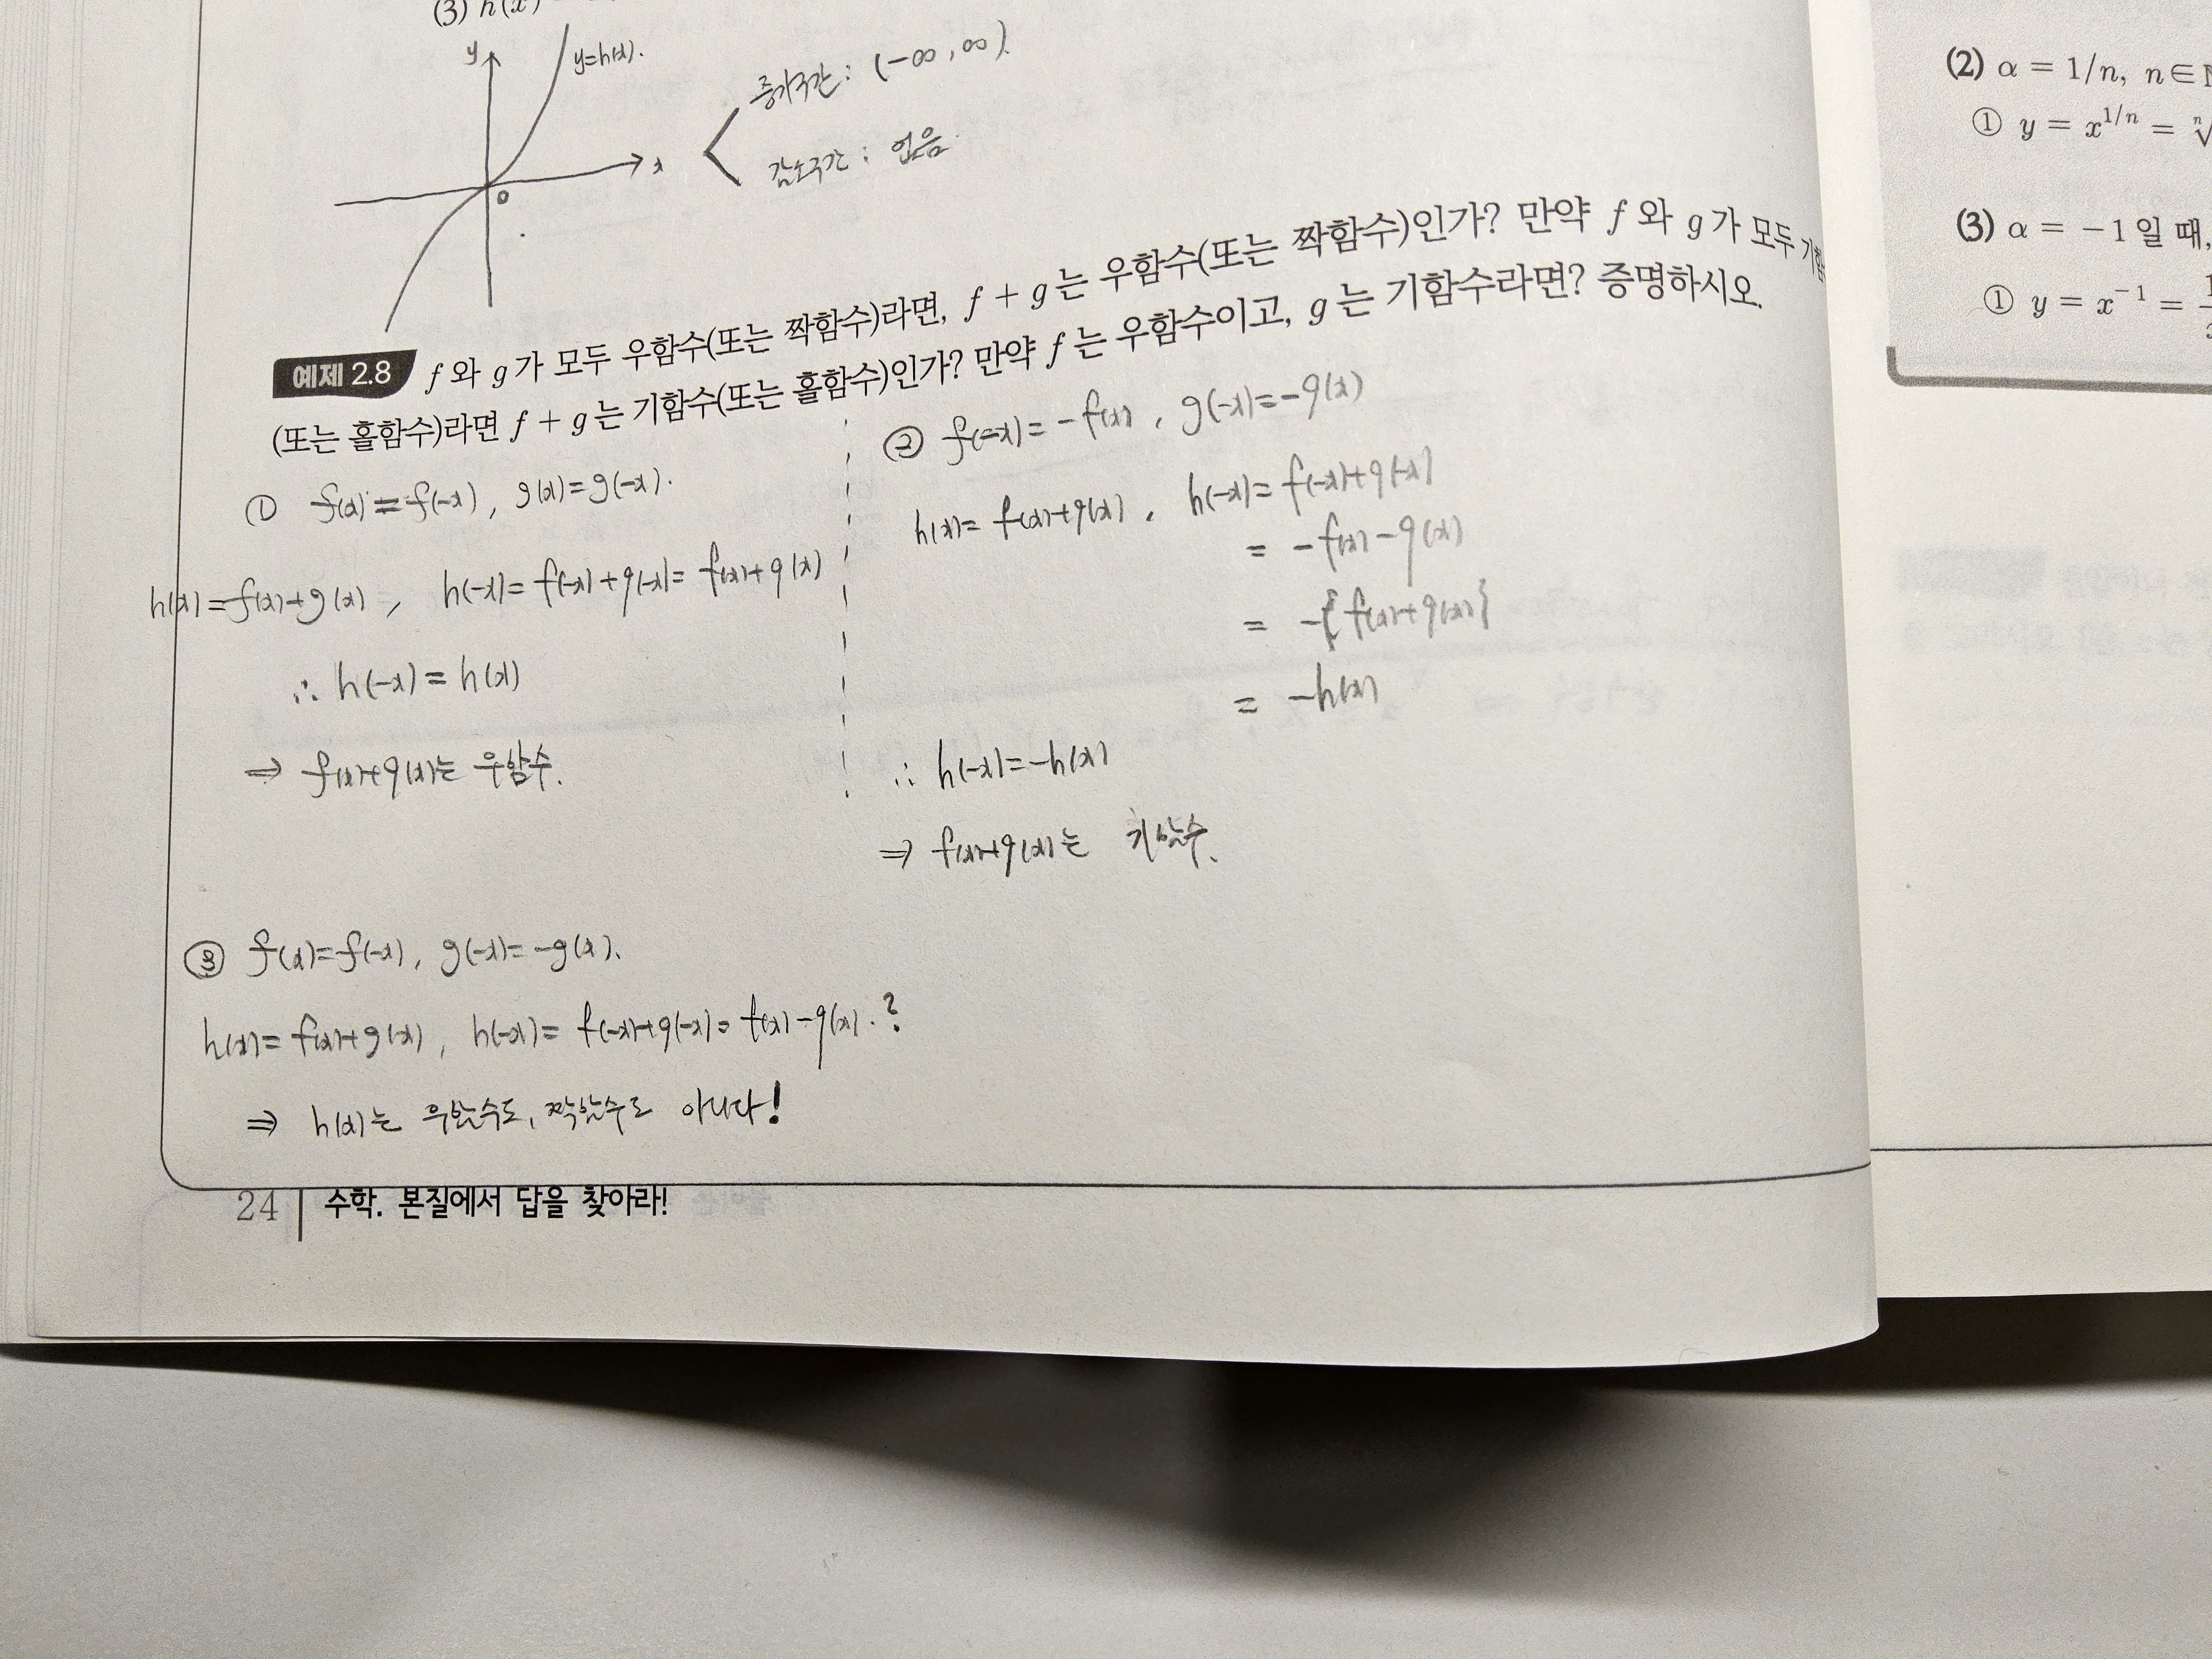 (3) h(x)
y
y=h(x).
x
0
증가구간 : (-∞, ∞).
감소구간 : 없음.
예제 2.8 f 와 g 가 모두 우함수(또는 짝함수)라면, f + g 는 우함수(또는 짝함수)인가? 만약 f 와 g 가 모두 기함
(또는 홀함수)라면 f + g 는 기함수(또는 홀함수)인가? 만약 f 는 우함수이고, g 는 기함수라면? 증명하시오.
① f(x) = f(-x), g(x)=g(-x).
h(x)=f(x)+g(x), h(-x)= f(-x)+g(-x)= f(x)+g(x)
∴ h(-x) = h(x)
⇒ f(x)+g(x)는 우함수.
② f(-x)= -f(x), g(-x)=-g(x)
h(x)= f(x)+g(x), h(-x)= f(-x)+g(-x)
= -f(x)-g(x)
= -{f(x)+g(x)}
= -h(x)
∴ h(-x)=-h(x)
⇒ f(x)+g(x)는 기함수.
③ f(x)=f(-x), g(-x)= -g(x).
h(x)= f(x)+g(x), h(-x)= f(-x)+g(-x)= f(x)-g(x).?
⇒ h(x)는 우함수도, 짝함수도 아니다!
24 | 수학. 본질에서 답을 찾아라!
(2) α = 1/n, n∈ℕ
① y = x^{1/n} = ⁿ√
(3) α = -1 일 때,
① y = x^{-1} = 1